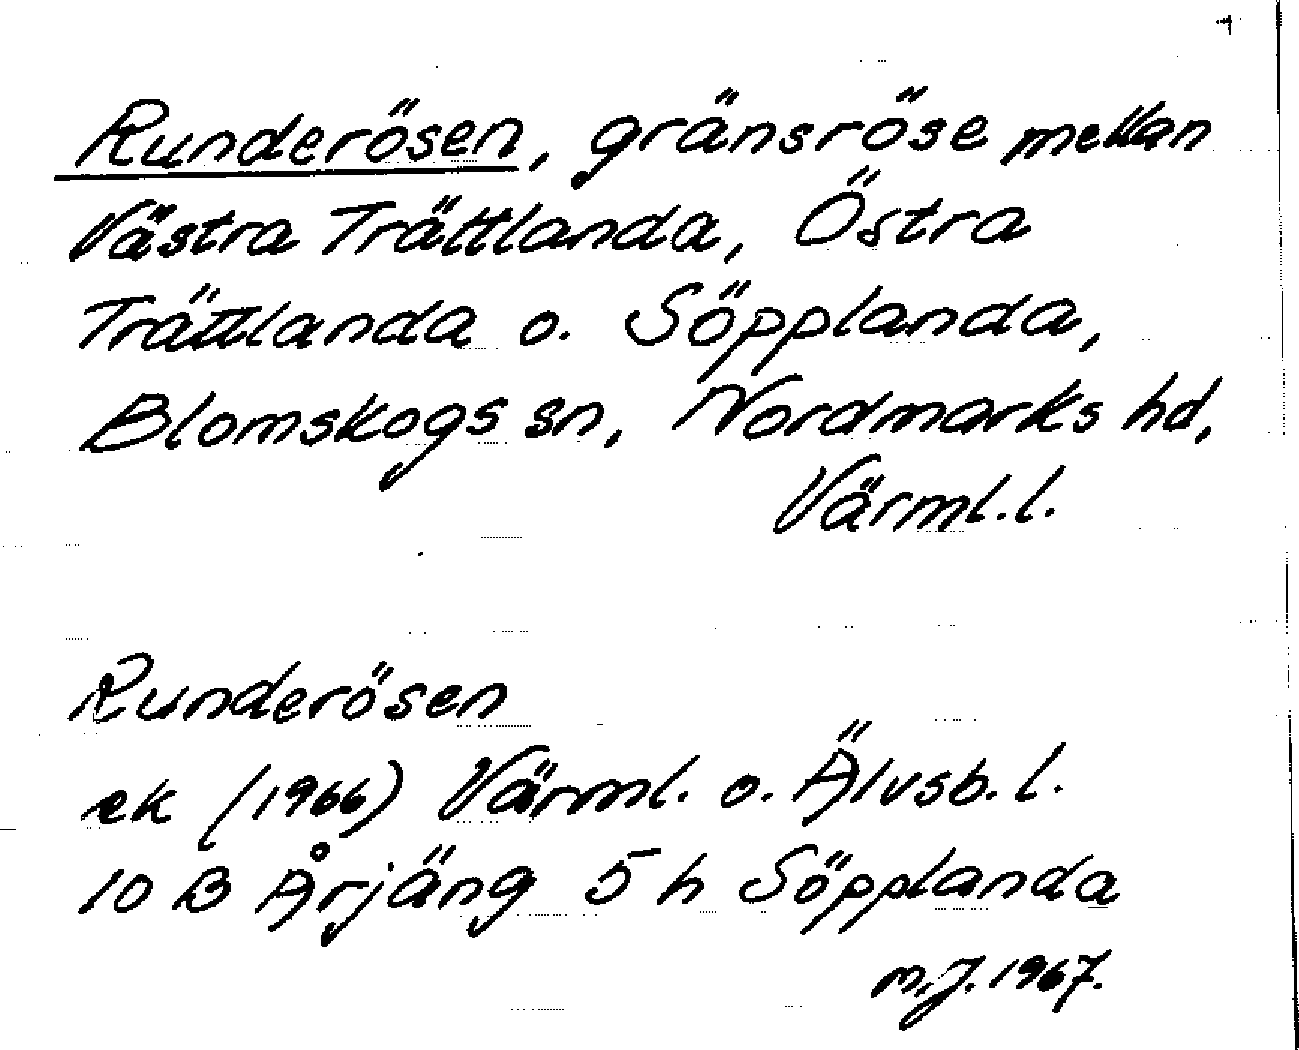 Runderösen, gränsröse mellan
Västra Trättlanda, Östra
Trättlanda o. Söpplanda,
Blomskogs sn, Nordmarks hd,
Värml.l.
Runderösen
ek (1966) Värml. o. Älvsb. l.
10 B Årjäng 5 h Söpplanda
M.J. 1967.